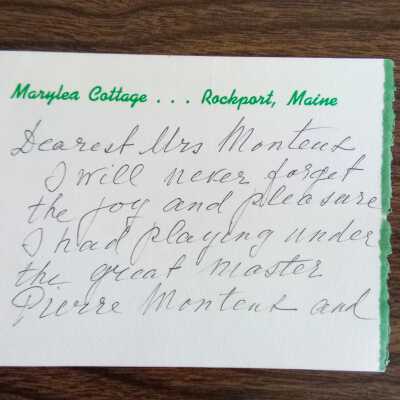 Marylea Cottage . . . Rockport, Maine
Dearest Mrs Monteux
I will never forget
the joy and pleasure
I had playing under
the great master
Pierre Monteux and